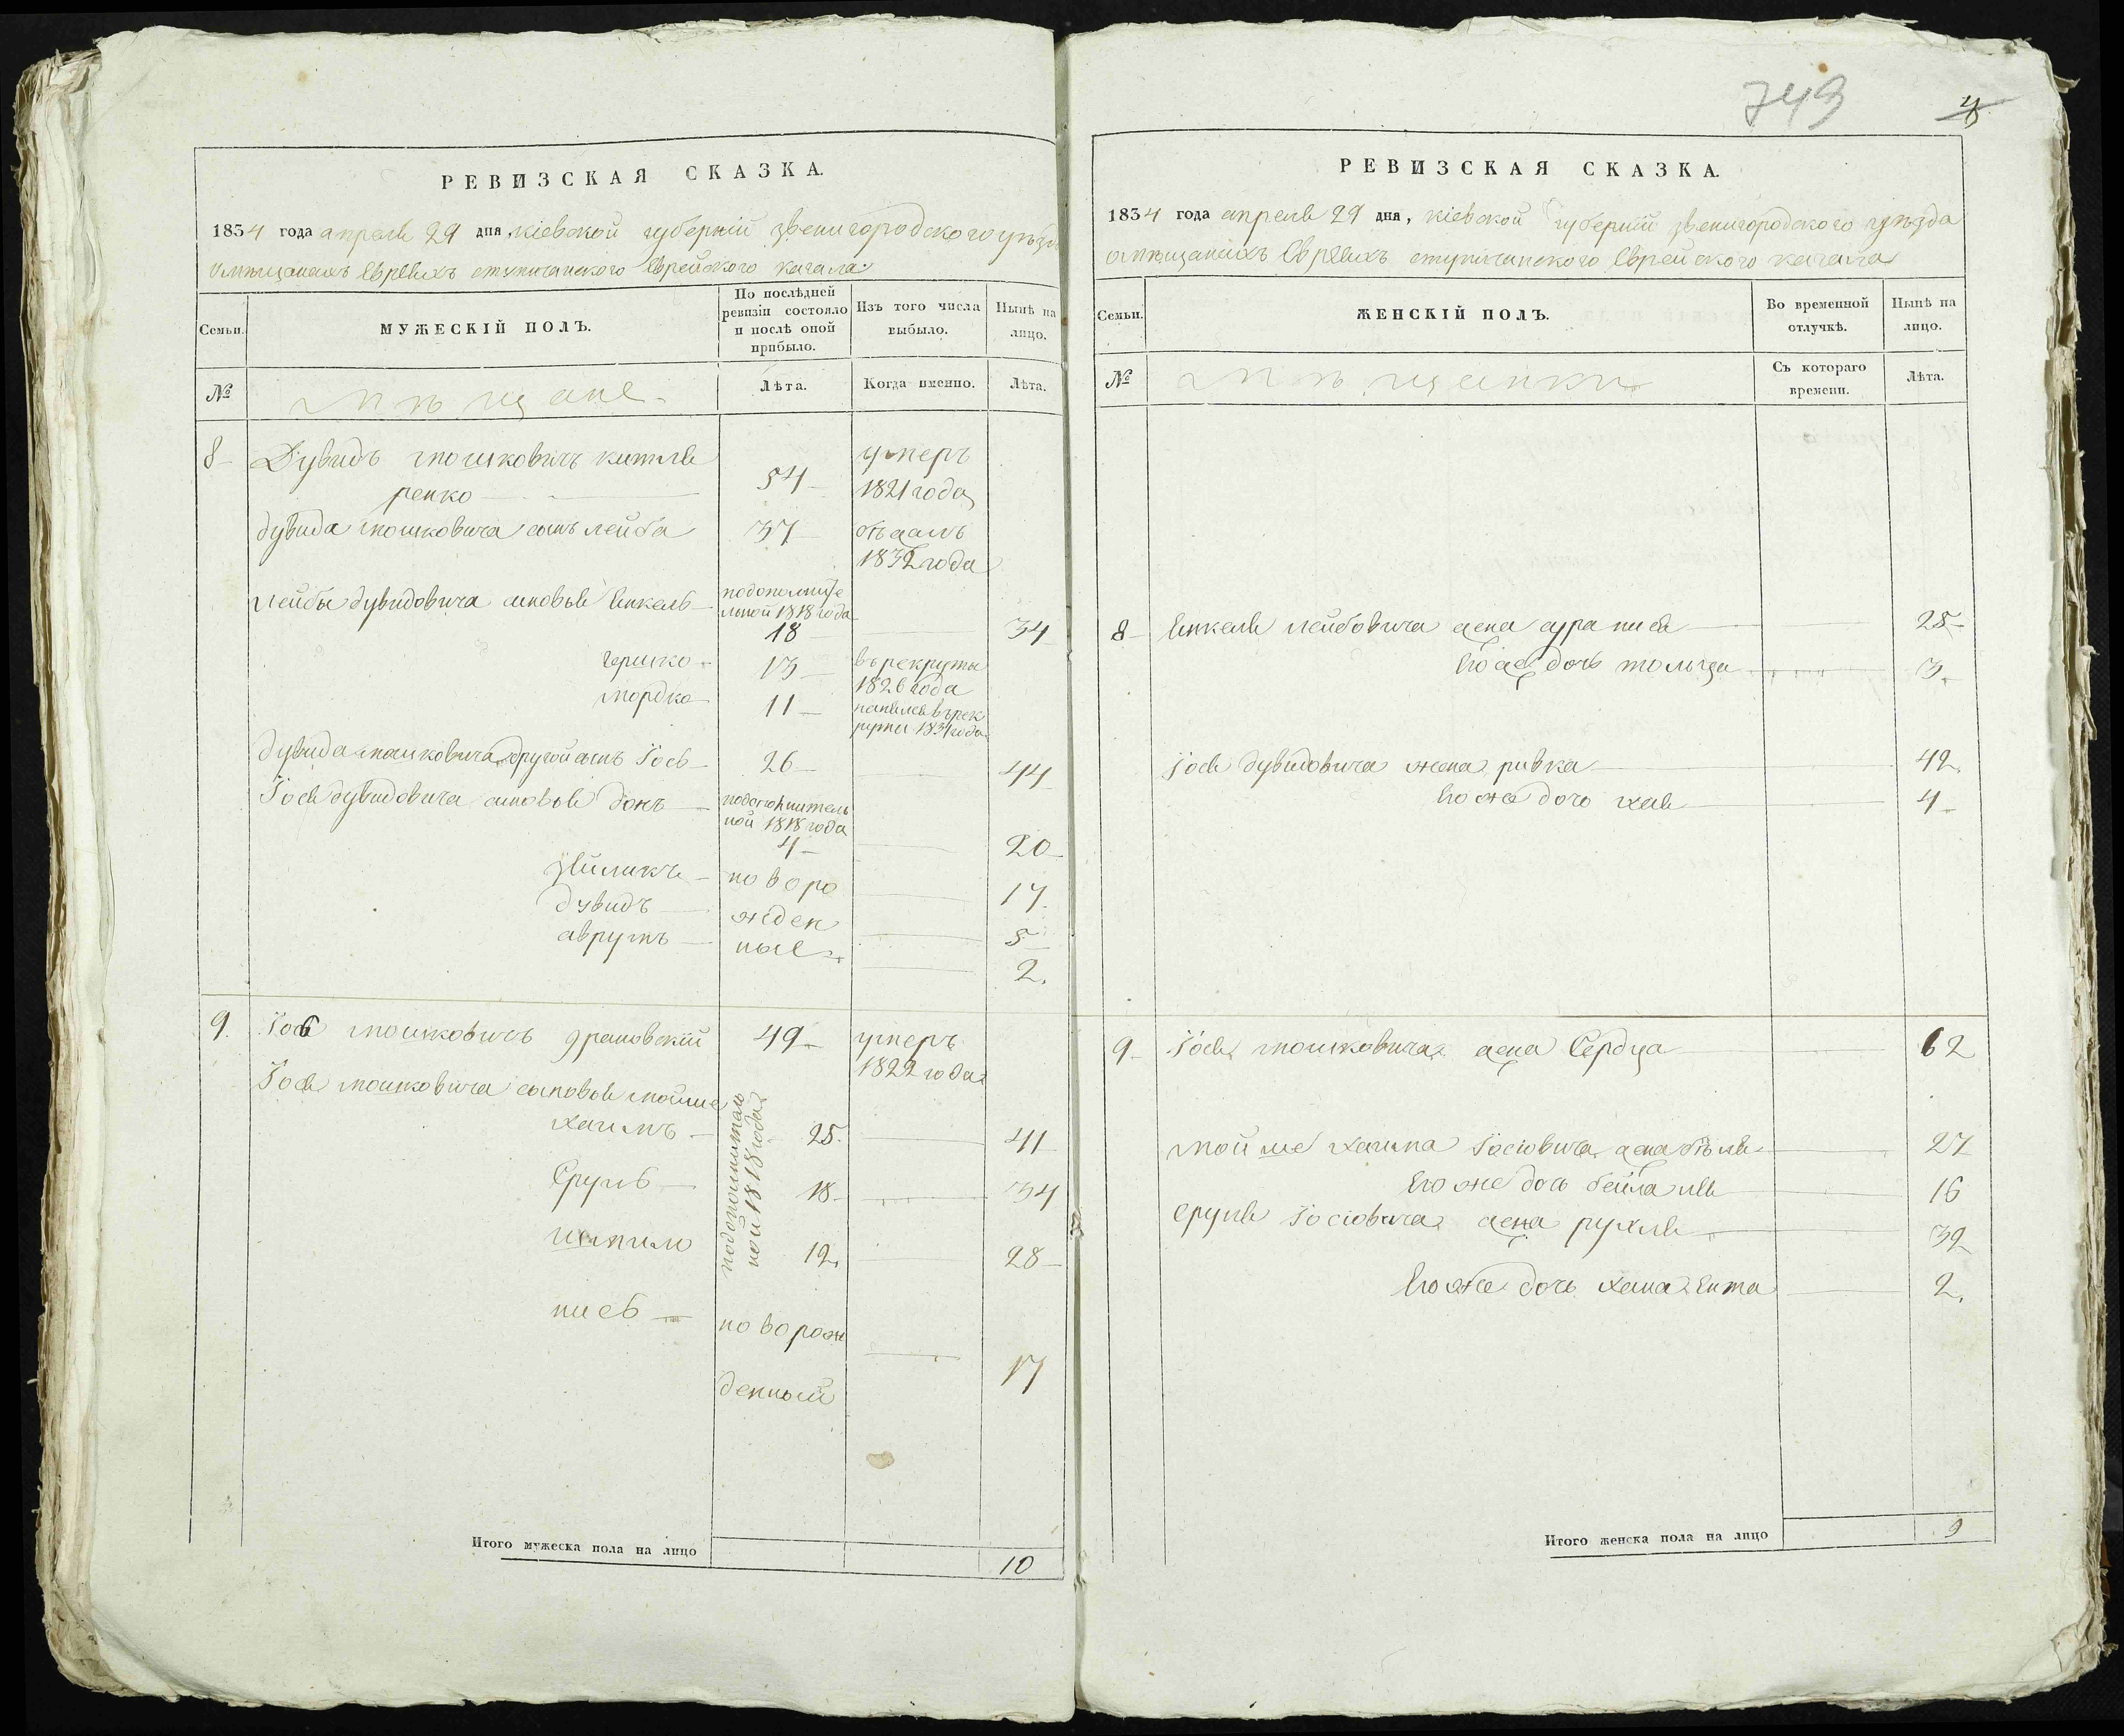 РЕВИЗСКАЯ СКАЗКА.
1834 года апреля 29 дня, кіевской губерніи звенигородского уѣзда
омѣщанахъ Евреяхъ Еврейского кагала
Семьи.
МУЖЕСКІЙ ПОЛЪ.
По послѣдней ревизіи состояло и послѣ оной прибыло.
Изъ того числа выбыло.
Нынѣ на лицо.
№
мѣщане
Лѣта.
Когда именно.
Лѣта.
8 Дувидъ мошковичъ 54 умеръ
1821 года
дувида мошковича сынъ лейба 37
1832 года
лейбы дувидовича сыновья Янкель подополните
льной 1818 года
18 34
гершко 13 въ рекруты
1826 года
мордко 11 въ рек
руты 1831 года
дувида мошковича другой сынъ Іось 26 44
Іося дувидовича сыновья подополнитель
ной 1818 года
4 20
зейликъ новоро 17
дувидъ жден 5
аврумъ ные 2.
9. Іось мошковичъ 49 умеръ
1822 года
Іося мошковича сыновья мойше
хаимъ подополнитель
ной 1818 года 25. 41
Сруль 18 34
12. 28
новорож
денный 17
Итого мужеска пола на лицо 10
743
4
РЕВИЗСКАЯ СКАЗКА.
1834 года апреля 29 дня, кіевской губерніи звенигородского уѣзда
омѣщанахъ Евреяхъ Еврейского кагала
Семьи.
ЖЕНСКІЙ ПОЛЪ.
Во временной отлучкѣ.
Нынѣ на лицо.
№
мѣщанки
Съ котораго времени.
Лѣта.
8 Янкеля лейбовича жена 25
Его же дочь 3.
Іося дувидовича жена ривка 42.
Его же дочь хая 4
9 Іося мошковича жена Сердца 62
мойше хаима Іосіовича жена 27
Его же дочь бейла 16
Сруля Іосіовича жена рухля 32
Его же дочь хана Ента 2.
Итого женска пола на лицо 9